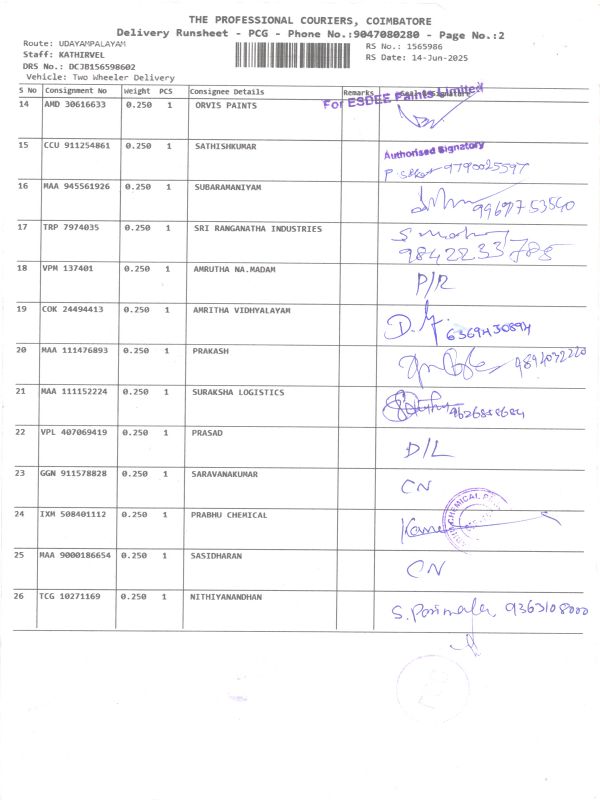 THE PROFESSIONAL COURIERS, COIMBATORE
Delivery Runsheet - PCG - Phone No.:9047080280 - Page No.:2
Route: UDAYAMPALAYAM
RS No.: 1565986
Staff: KATHIRVEL
RS Date: 14-Jun-2025
DRS No.: DCJB156598602
Vehicle: Two Wheeler Delivery
S No Consignment No Weight PCS Consignee Details Remarks
For ESDEE Paints Limited
14 AMD 30616633 0.250 1 ORVIS PAINTS
15 CCU 911254861 0.250 1 SATHISHKUMAR
Authorised Signatory
9790025597
16 MAA 945561926 0.250 1 SUBARAMANIYAM
17 TRP 7974035 0.250 1 SRI RANGANATHA INDUSTRIES
9842233788
18 VPM 137401 0.250 1 AMRUTHA NA.MADAM P/R
19 COK 24494413 0.250 1 AMRITHA VIDHYALAYAM
6369430894
20 MAA 111476893 0.250 1 PRAKASH
9894032220
21 MAA 111152224 0.250 1 SURAKSHA LOGISTICS
22 VPL 407069419 0.250 1 PRASAD D/L
23 GGN 911578828 0.250 1 SARAVANAKUMAR CN
24 IXM 508401112 0.250 1 PRABHU CHEMICAL
25 MAA 9000186654 0.250 1 SASIDHARAN CN
26 TCG 10271169 0.250 1 NITHIYANANDHAN S. Parimala, 9363108000